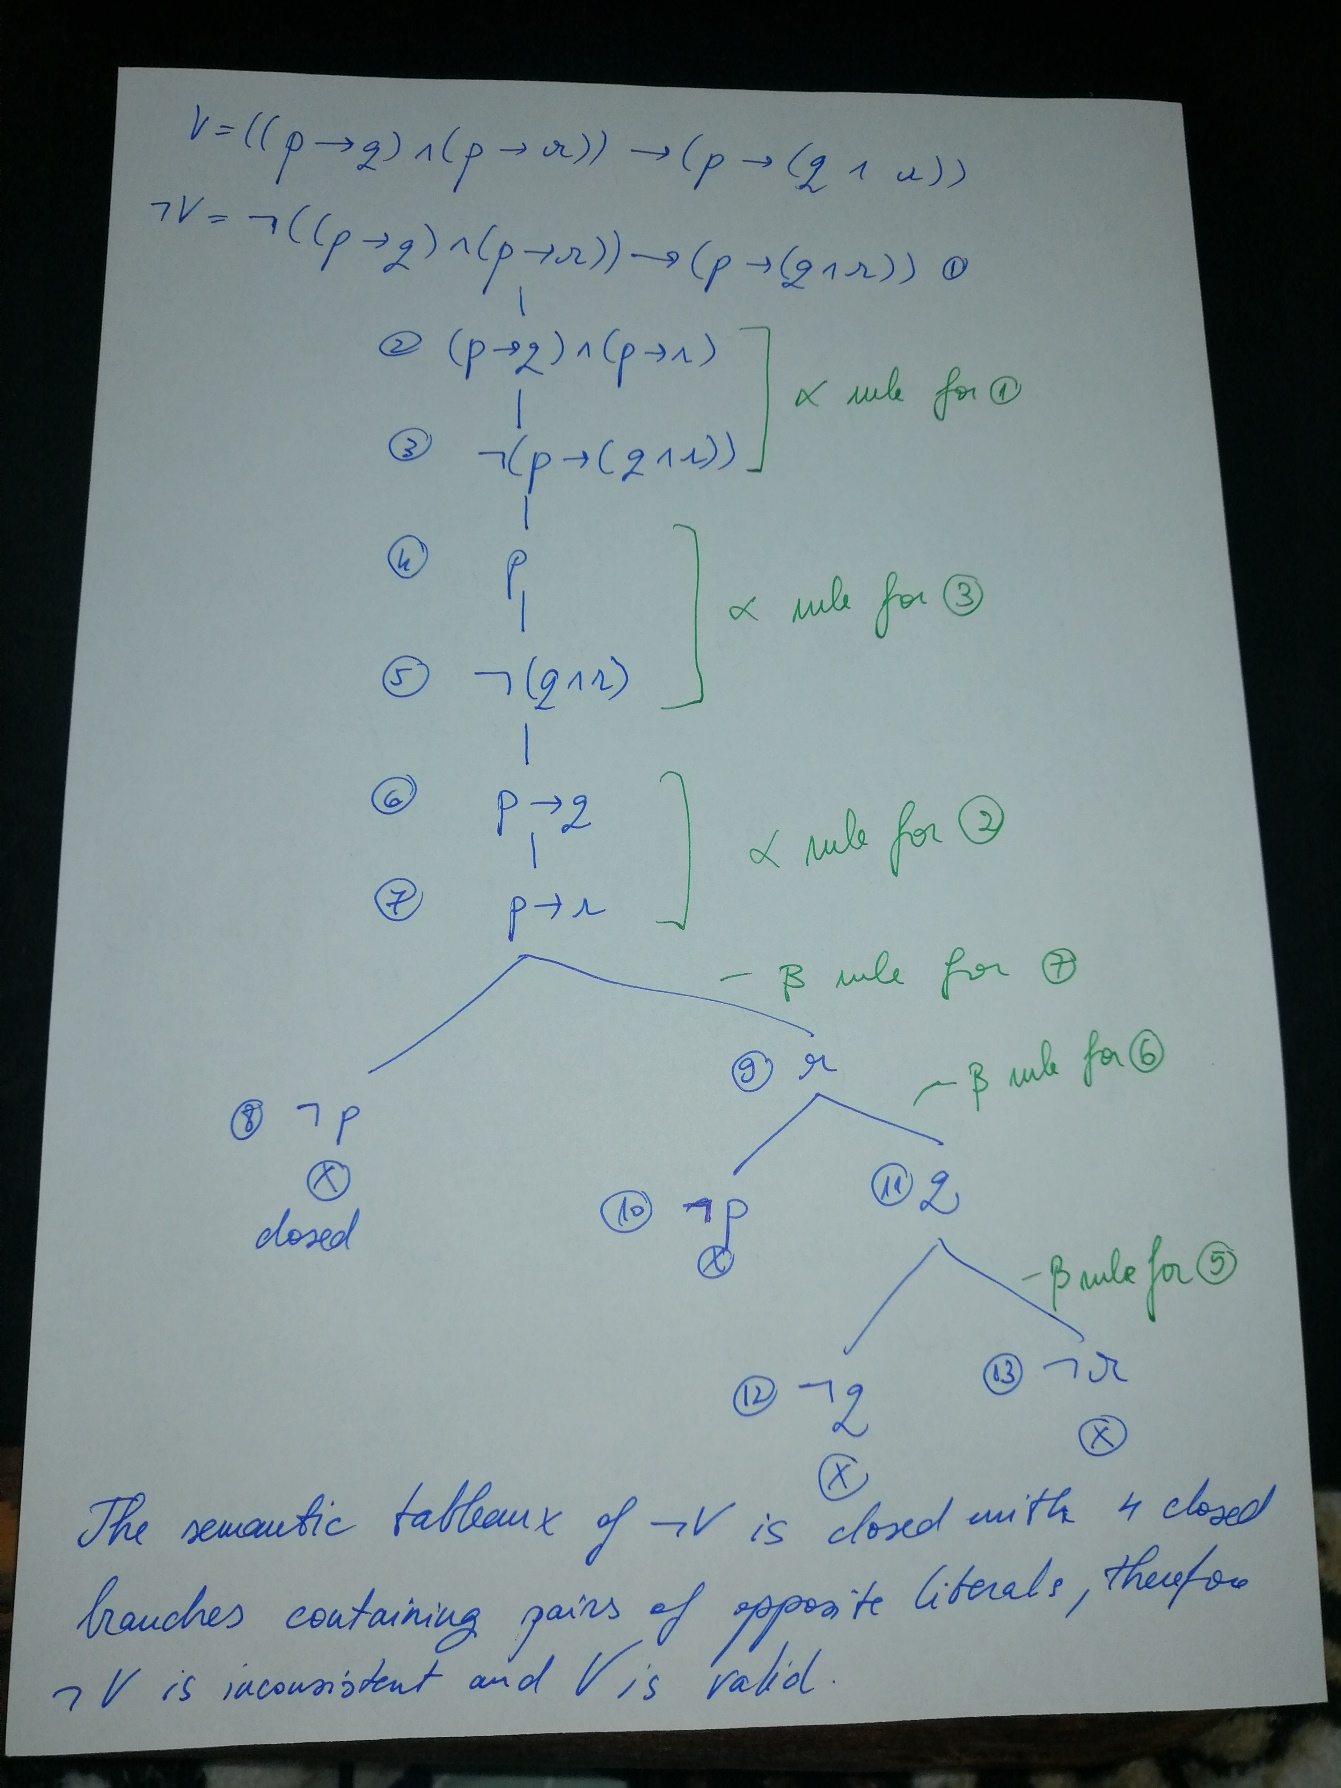 V=((p→q)∧(p→r))→(p→(q∧r))
¬V=¬((p→q)∧(p→r))→(p→(q∧r)) ①
② (p→q)∧(p→r)
α rule for ①
③ ¬(p→(q∧r))
④ p
α rule for ③
⑤ ¬(q∧r)
⑥ p→q
α rule for ②
⑦ p→r
- β rule for ⑦
⑨ r
- β rule for ⑥
⑧ ¬p
ⓧ
closed
⑩ ¬p
ⓧ
⑪ q
- β rule for ⑤
⑫ ¬q
ⓧ
⑬ ¬r
ⓧ
The semantic tableaux of ¬V is closed with 4 closed
branches containing pairs of opposite literals, therefore
¬V is inconsistent and V is valid.